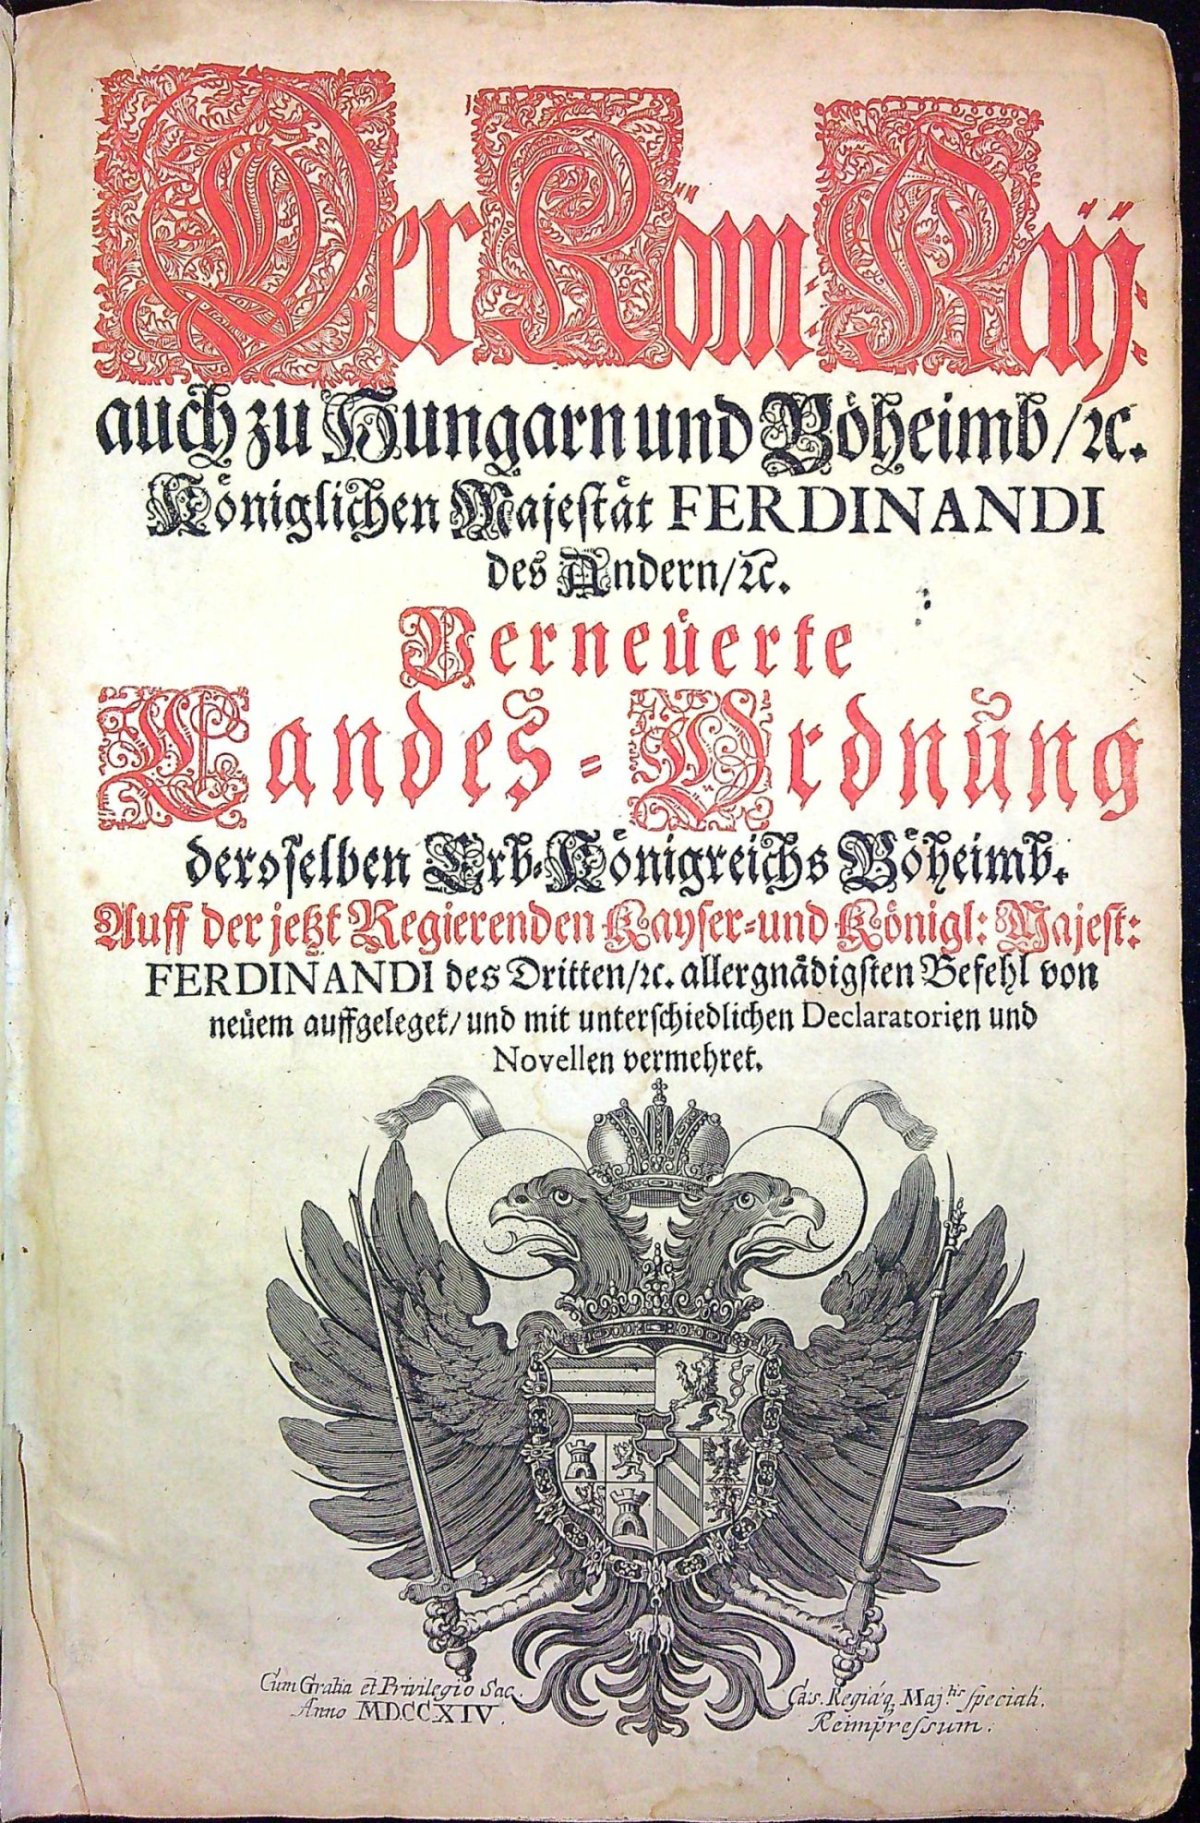 Der Röm: Kaÿ:
auch zu Hungarn und Böheimb/ꝛc.
Königlichen Majestät FERDINANDI
des Andern/ꝛc.
Verneüerte
Landes-Ordnung
deroselben Erb-Königreichs Böheimb.
Auff der jetzt Regierenden Kayser- und Königl: Majest:
FERDINANDI des Dritten/ꝛc. allergnädigsten Befehl von
neüem auffgeleget/ und mit unterschiedlichen Declaratorien und
Novellen vermehret.
Cum Gratia et Privilegio Sac. Cæs. Regiáq, Maj.tis speciali.
Anno MDCCXIV. Reimpressum.